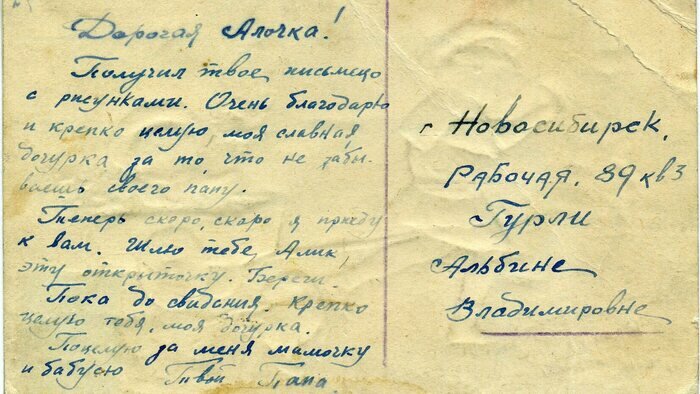 Дорогая Алочка!
Получил твое письмецо
с рисунками. Очень благодарю
и крепко целую, моя славная
дочурка за то, что не забы-
ваешь своего папу.
Теперь скоро, скоро я приеду
к вам. Шлю тебе, Алик,
эту открыточку. Береги.
Пока до свидания. Крепко
целую тебя, моя дочурка.
Поцелую за меня мамочку
и бабусю Твой Папа.
г. Новосибирск,
Рабочая, 89 кв 3
Гурли
Альбине
Владимировне